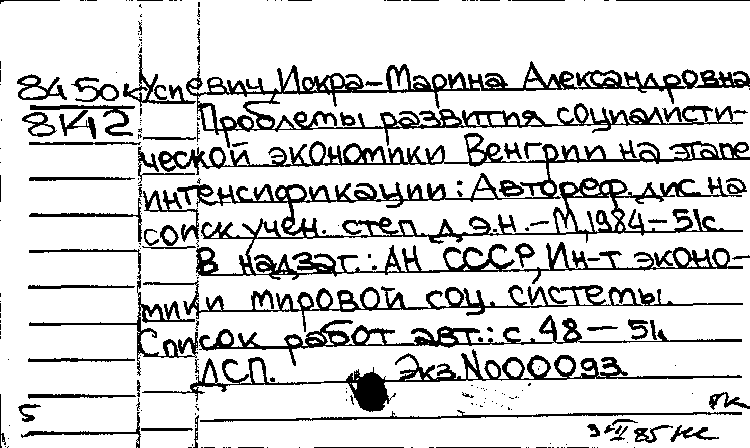 8450к Успевич, Искра-Марина Александровна
8К42 Проблемы развития социалисти-
ческой экономики Венгрии на этапе
интенсификации: Автореф. дис. на
соиск. учен. степ. д.э.н. – М, 1984 – 51с.
В надзаг.: АН СССР, Ин-т эконо-
мики мировой соц. системы.
Список работ авт.: с. 48 – 51.
ДСП. Экз. №000093.
5
85